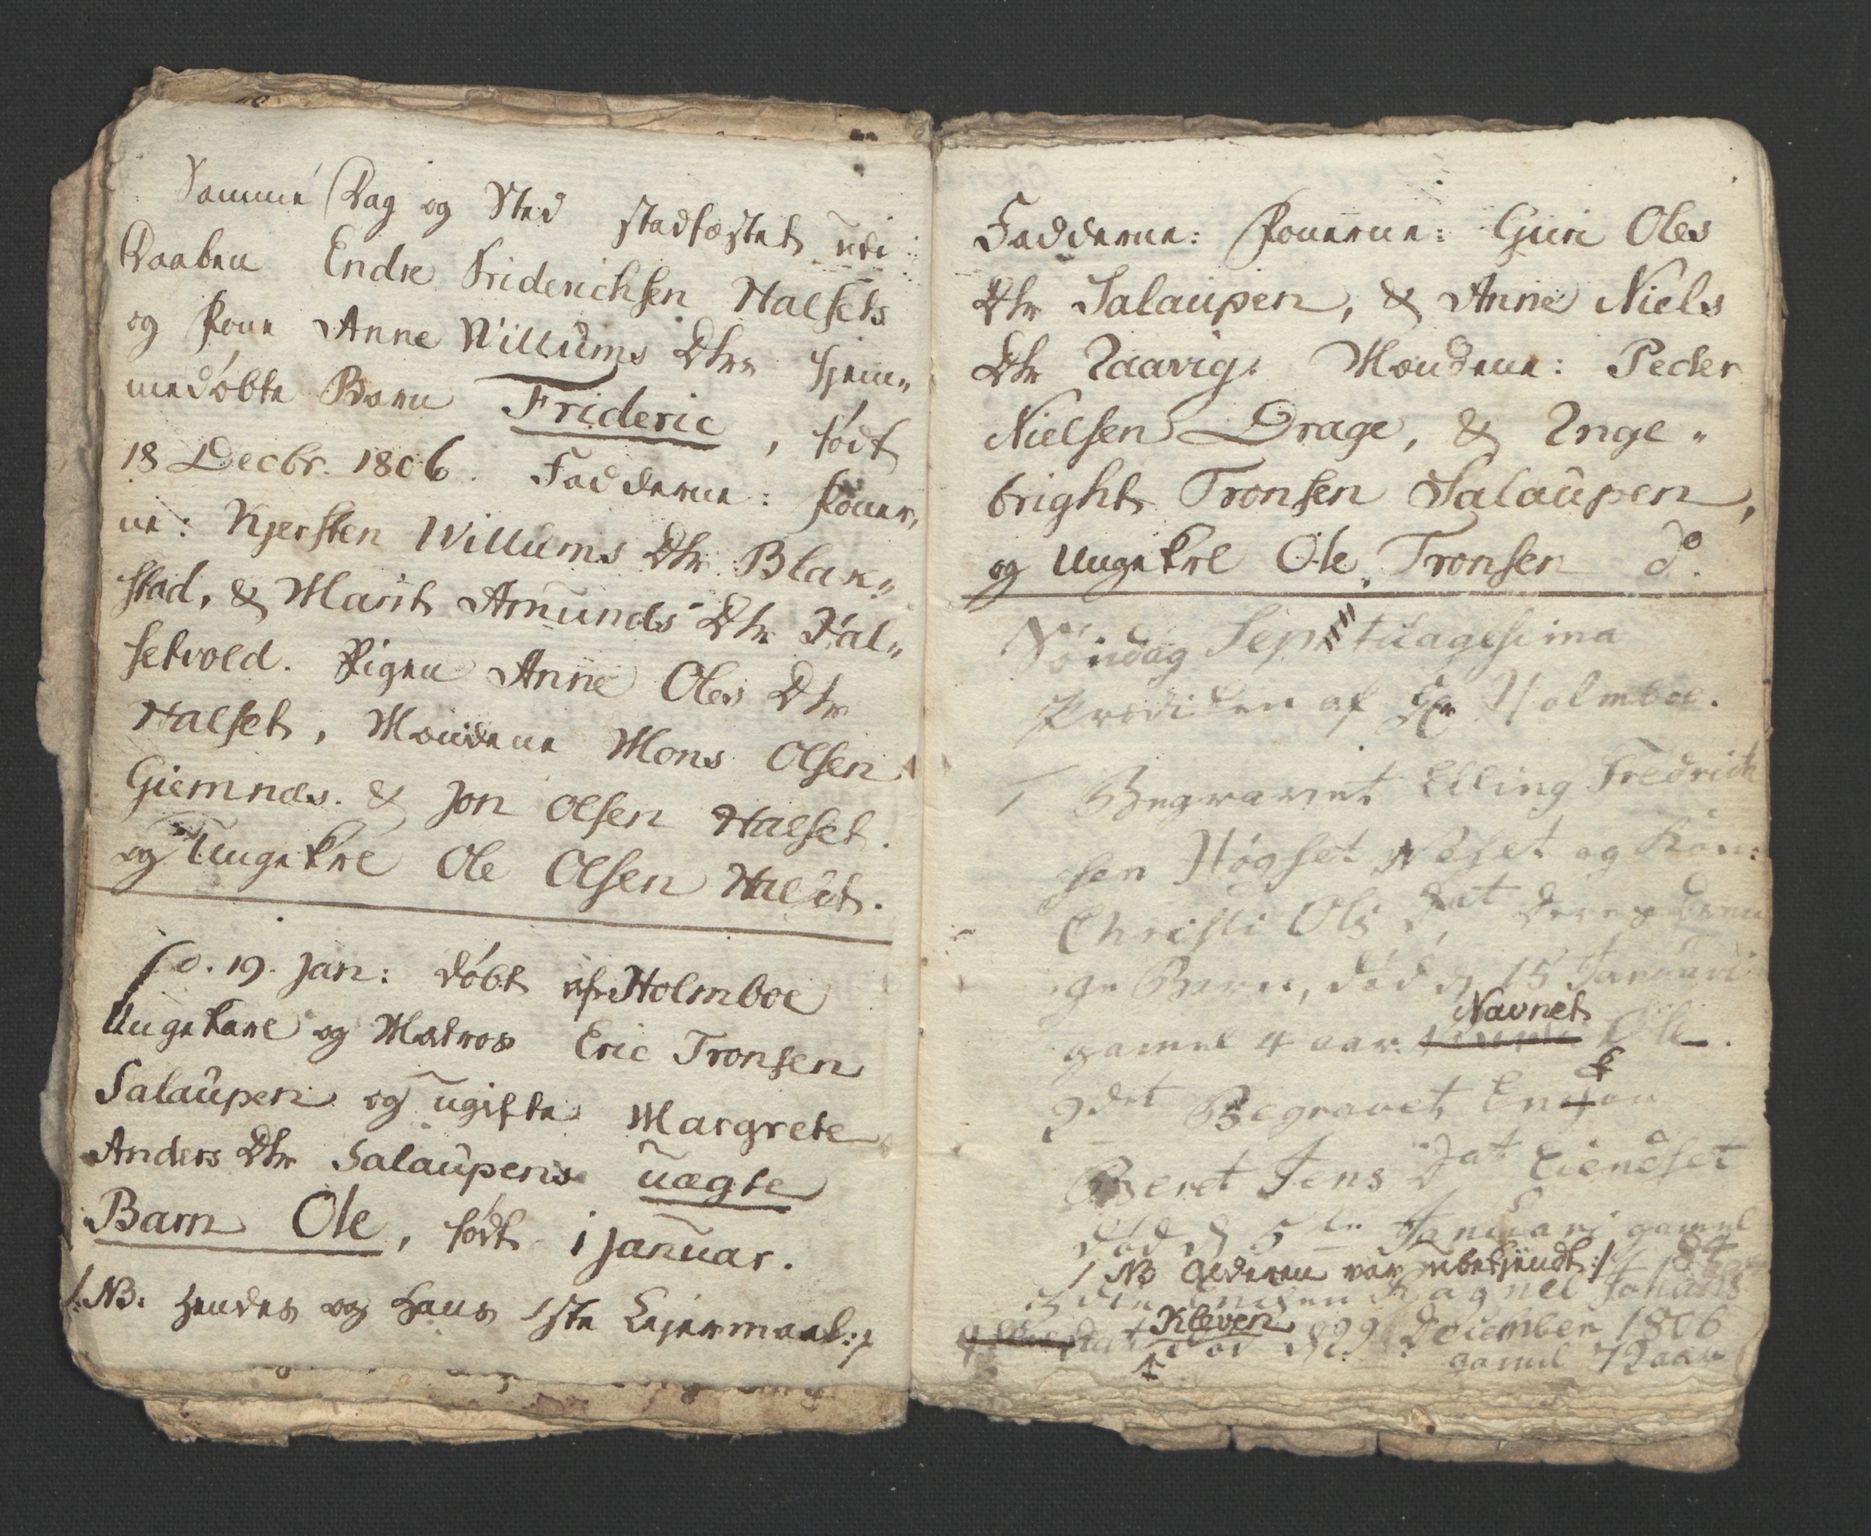 Samme Dag og Sted stadfæstet udi
Daaben Endre Friderichsen Halsets
og Kone Anne Willums Dtrs hjem„
medøbte Barn Frideric, født
18 Decbr. 1806. Fadderne: Koner„
ne: Kjersten Willums Dtr Blak„
stad, & Marit Amunds Dtr Hal„
setvold. Pigen Anne Oles Dtr
Halset, Mændene Mons Olsen
Giemnæs. & Jon Olsen Halset.
og Ungekrl Ole Olsen Halset.
d. 19. Jan: døbt af Holmboe
Ungekarl og Matros Eric Tronsen
Salaupen og ugifte Margrete
Anders Dtr Salaupens uægte
Barn Ole, født i Januar.
/:NB: Hendes og Hans 1ste Lejermaal:/
Fadderne: Konerne: Guri Oles
Dtr Salaupen, & Anne Niels
Dtr Raavig. Mændene: Peder
Nielsen Drage, & Inge„
bright Tronsen Salaupen,
og Ungekrl Ole Tronsen do.
Søndag Septuagesima
Prædiken af Hr Holmboe.
1 Begravet Elling Fredrich
sen Høgset og Kon:
Christi Ols Dat Deres
ge Barn, død d 15 Januari
Navnet
gamel 4 aar. Ole.
2det Begravet Enken
Beret Jens Dat Eiendset
død d 5te Januari gamel 84
/ NB Alderen var ubekjendt:/
Enken Ragnel Johans
Kleven
Dat død d 29 December 1806
gamel 72 aar